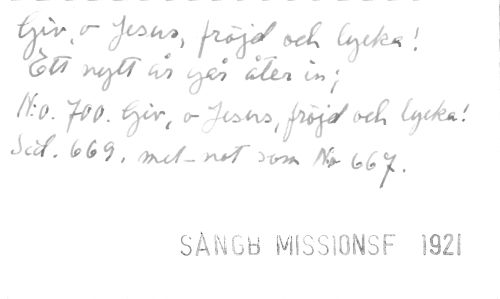 Giv, o Jesus, fröjd och lycka!
Ett nytt år går åter in;
N:o. 700. Giv, o Jesus, fröjd och lycka!
Sid. 669. mel-not som No 667.
SÅNGB MISSIONSF 1921